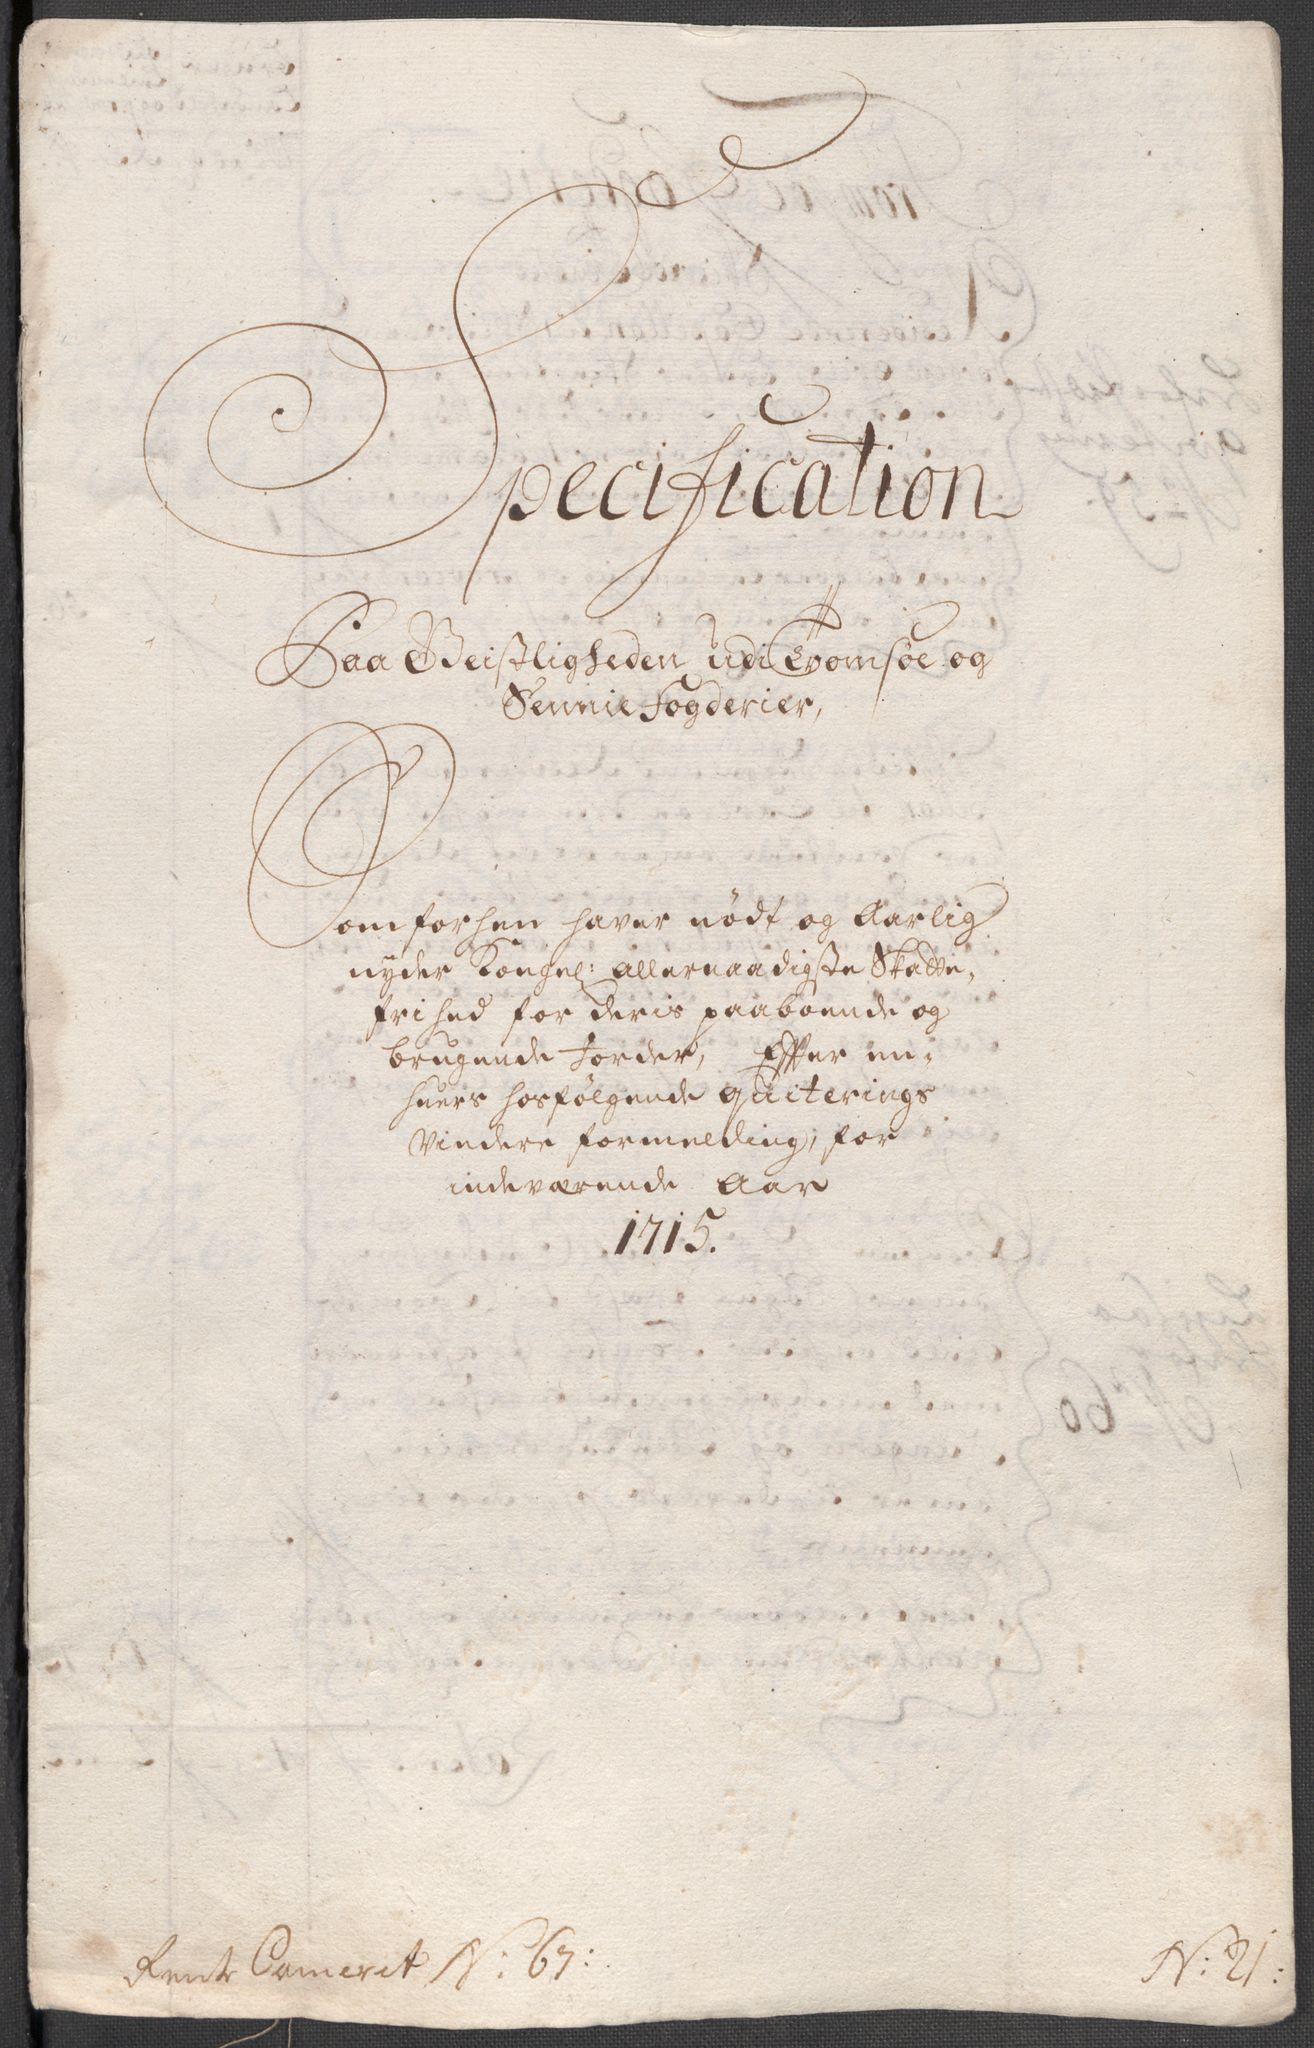 Specification
Paa Geistligheden udi Tromsøe og
Sennie Fogderier,
Som forhen haver nødt og Aarlig
nyder Kongel: allernaadigste Skatte,
frihed for deris paaboende og
brugende Jorder, Efter en,
huers hosfølgende quiterings
Vindere formelding, for
indeværende Aar
1715.
Rente Cameret N: 67:
N: 21: